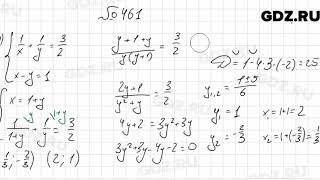 № 461
GDZ.RU
{ 1/x + 1/y = 3/2
x - y = 1
{ x = 1+y
1/(1+y) + 1/y = 3/2
1/3; -2/3) (2; 1)
(y+1+y)/(y(y+1)) = 3/2
(2y+1)/(y²+y) = 3/2
4y+2 = 3y²+3y
3y²+3y-4y-2=0
D = 1-4·3·(-2) = 25
y₁,₂ = (1±5)/6
y₁ = 1 x₁ = 1+1 = 2
y₂ = -2/3 x₂ = 1+(-2/3) = 1/3